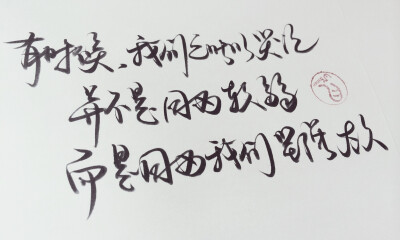 有时候、我们之所以哭泣
并不是因为软弱
而是因为我们